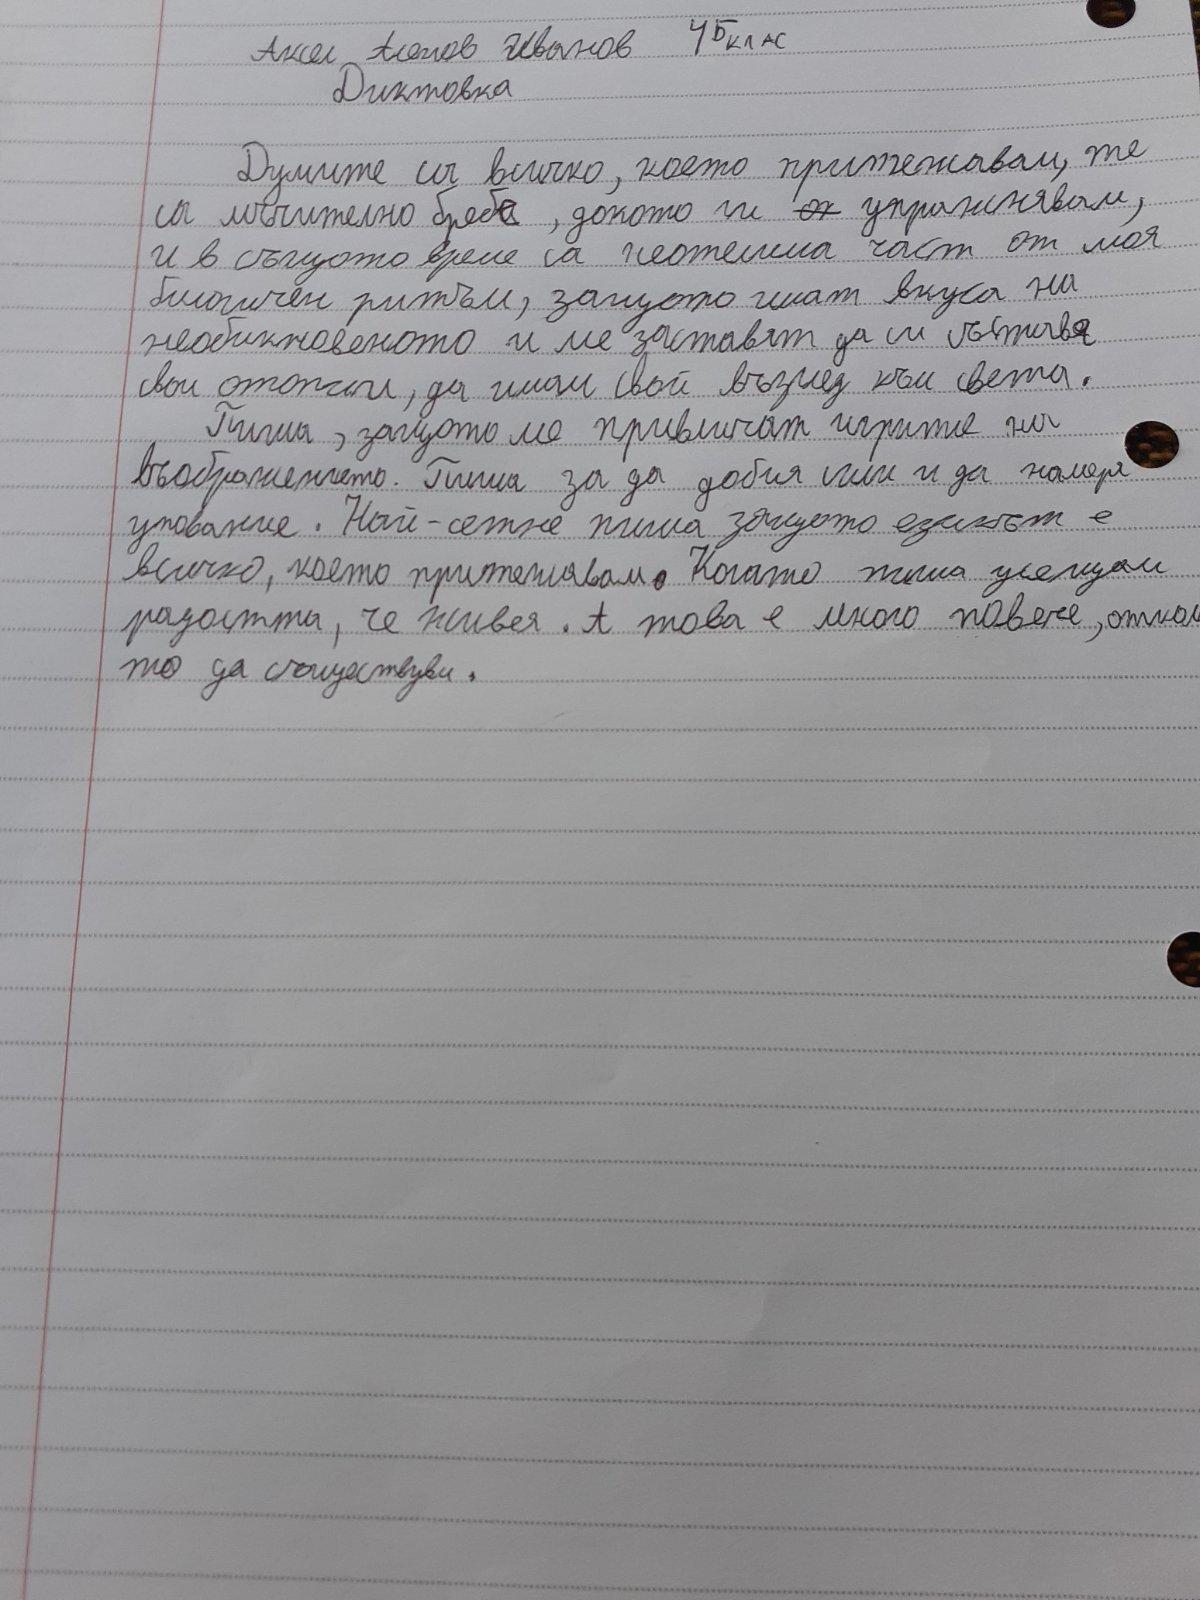 Аксел Асенов Иванов 4Б клас
Диктовка
Думите са всичко, което притежавам, те
са мъчително бреме, докато ги упражнявам,
и в същото време са неотемима част от моя
биологичен ритъм, защото имат вкуса на
необикновеното и ме заставят да си съставя
свои откоси, да имам свой възглед към света.
Пиша, защото ме привличат игрите на
въображението. Пиша за да добия сили и да намеря
упование. Най-сетне пиша защото езикът е
всичко, което притежавам. Когато пиша усещам
радостта, че живея. А това е много повече, откол
то да съществувам.